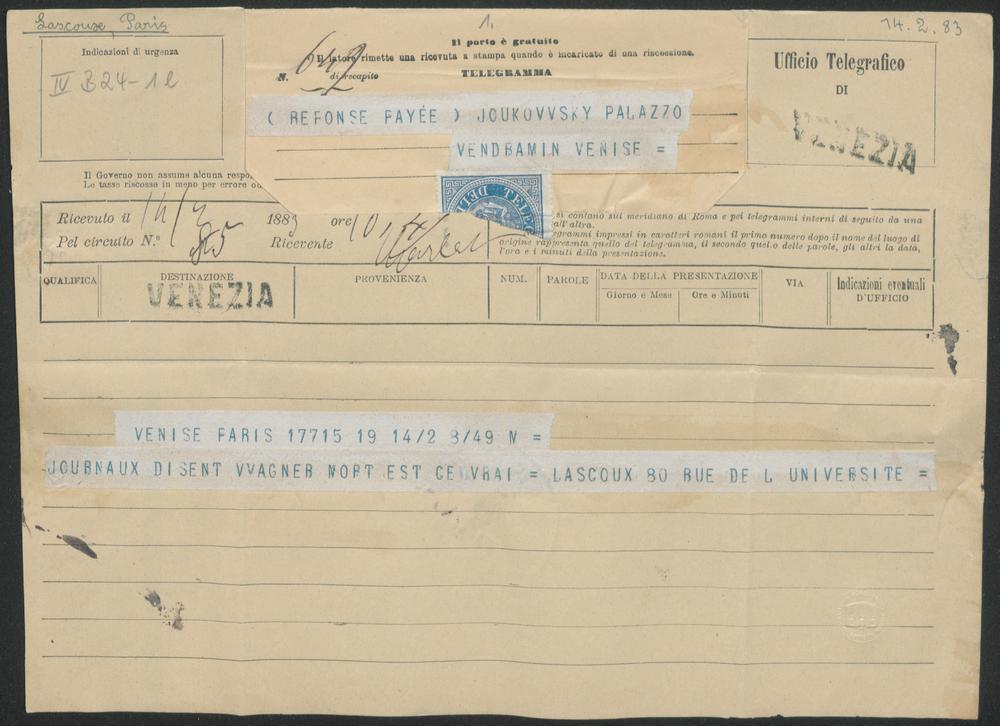 Lascoux, Paris
1.
14.2.83
Indicazioni di urgenza
IV B24-12
Il porto è gratuito
Il latore rimette una ricevuta a stampa quando è incaricato di una riscossione.
N. 649 di recapito
TELEGRAMMA
Ufficio Telegrafico
DI
VENEZIA
( REFONSE FAYÉE ) JOUKOVVSKY PALAZZO
VENDRAMIN VENISE =
Il Governo non assume alcuna respo
Le tasse riscosse in meno per errore o
TELEG
Ricevuto il 14/2 1883 ore 10,
Pel circuito N.° Ricevente
si contano sul meridiano di Roma e pei telegrammi interni di seguito da una
all'altra.
egrammi impressi in caratteri romani il primo numero dopo il nome del luogo di
origine rappresenta quello del telegramma, il secondo quello delle parole, gli altri la data,
l'ora e i minuti della presentazione.
QUALIFICA DESTINAZIONE PROVENIENZA NUM. PAROLE DATA DELLA PRESENTAZIONE VIA Indicazioni eventuali
Giorno e Mese Ore e Minuti D'UFFICIO
VENEZIA
VENISE PARIS 17715 19 14/2 8/49 M =
JOURNAUX DISENT VVAGNER MORT EST CE VRAI = LASCOUX 80 RUE DE L UNIVERSITE =